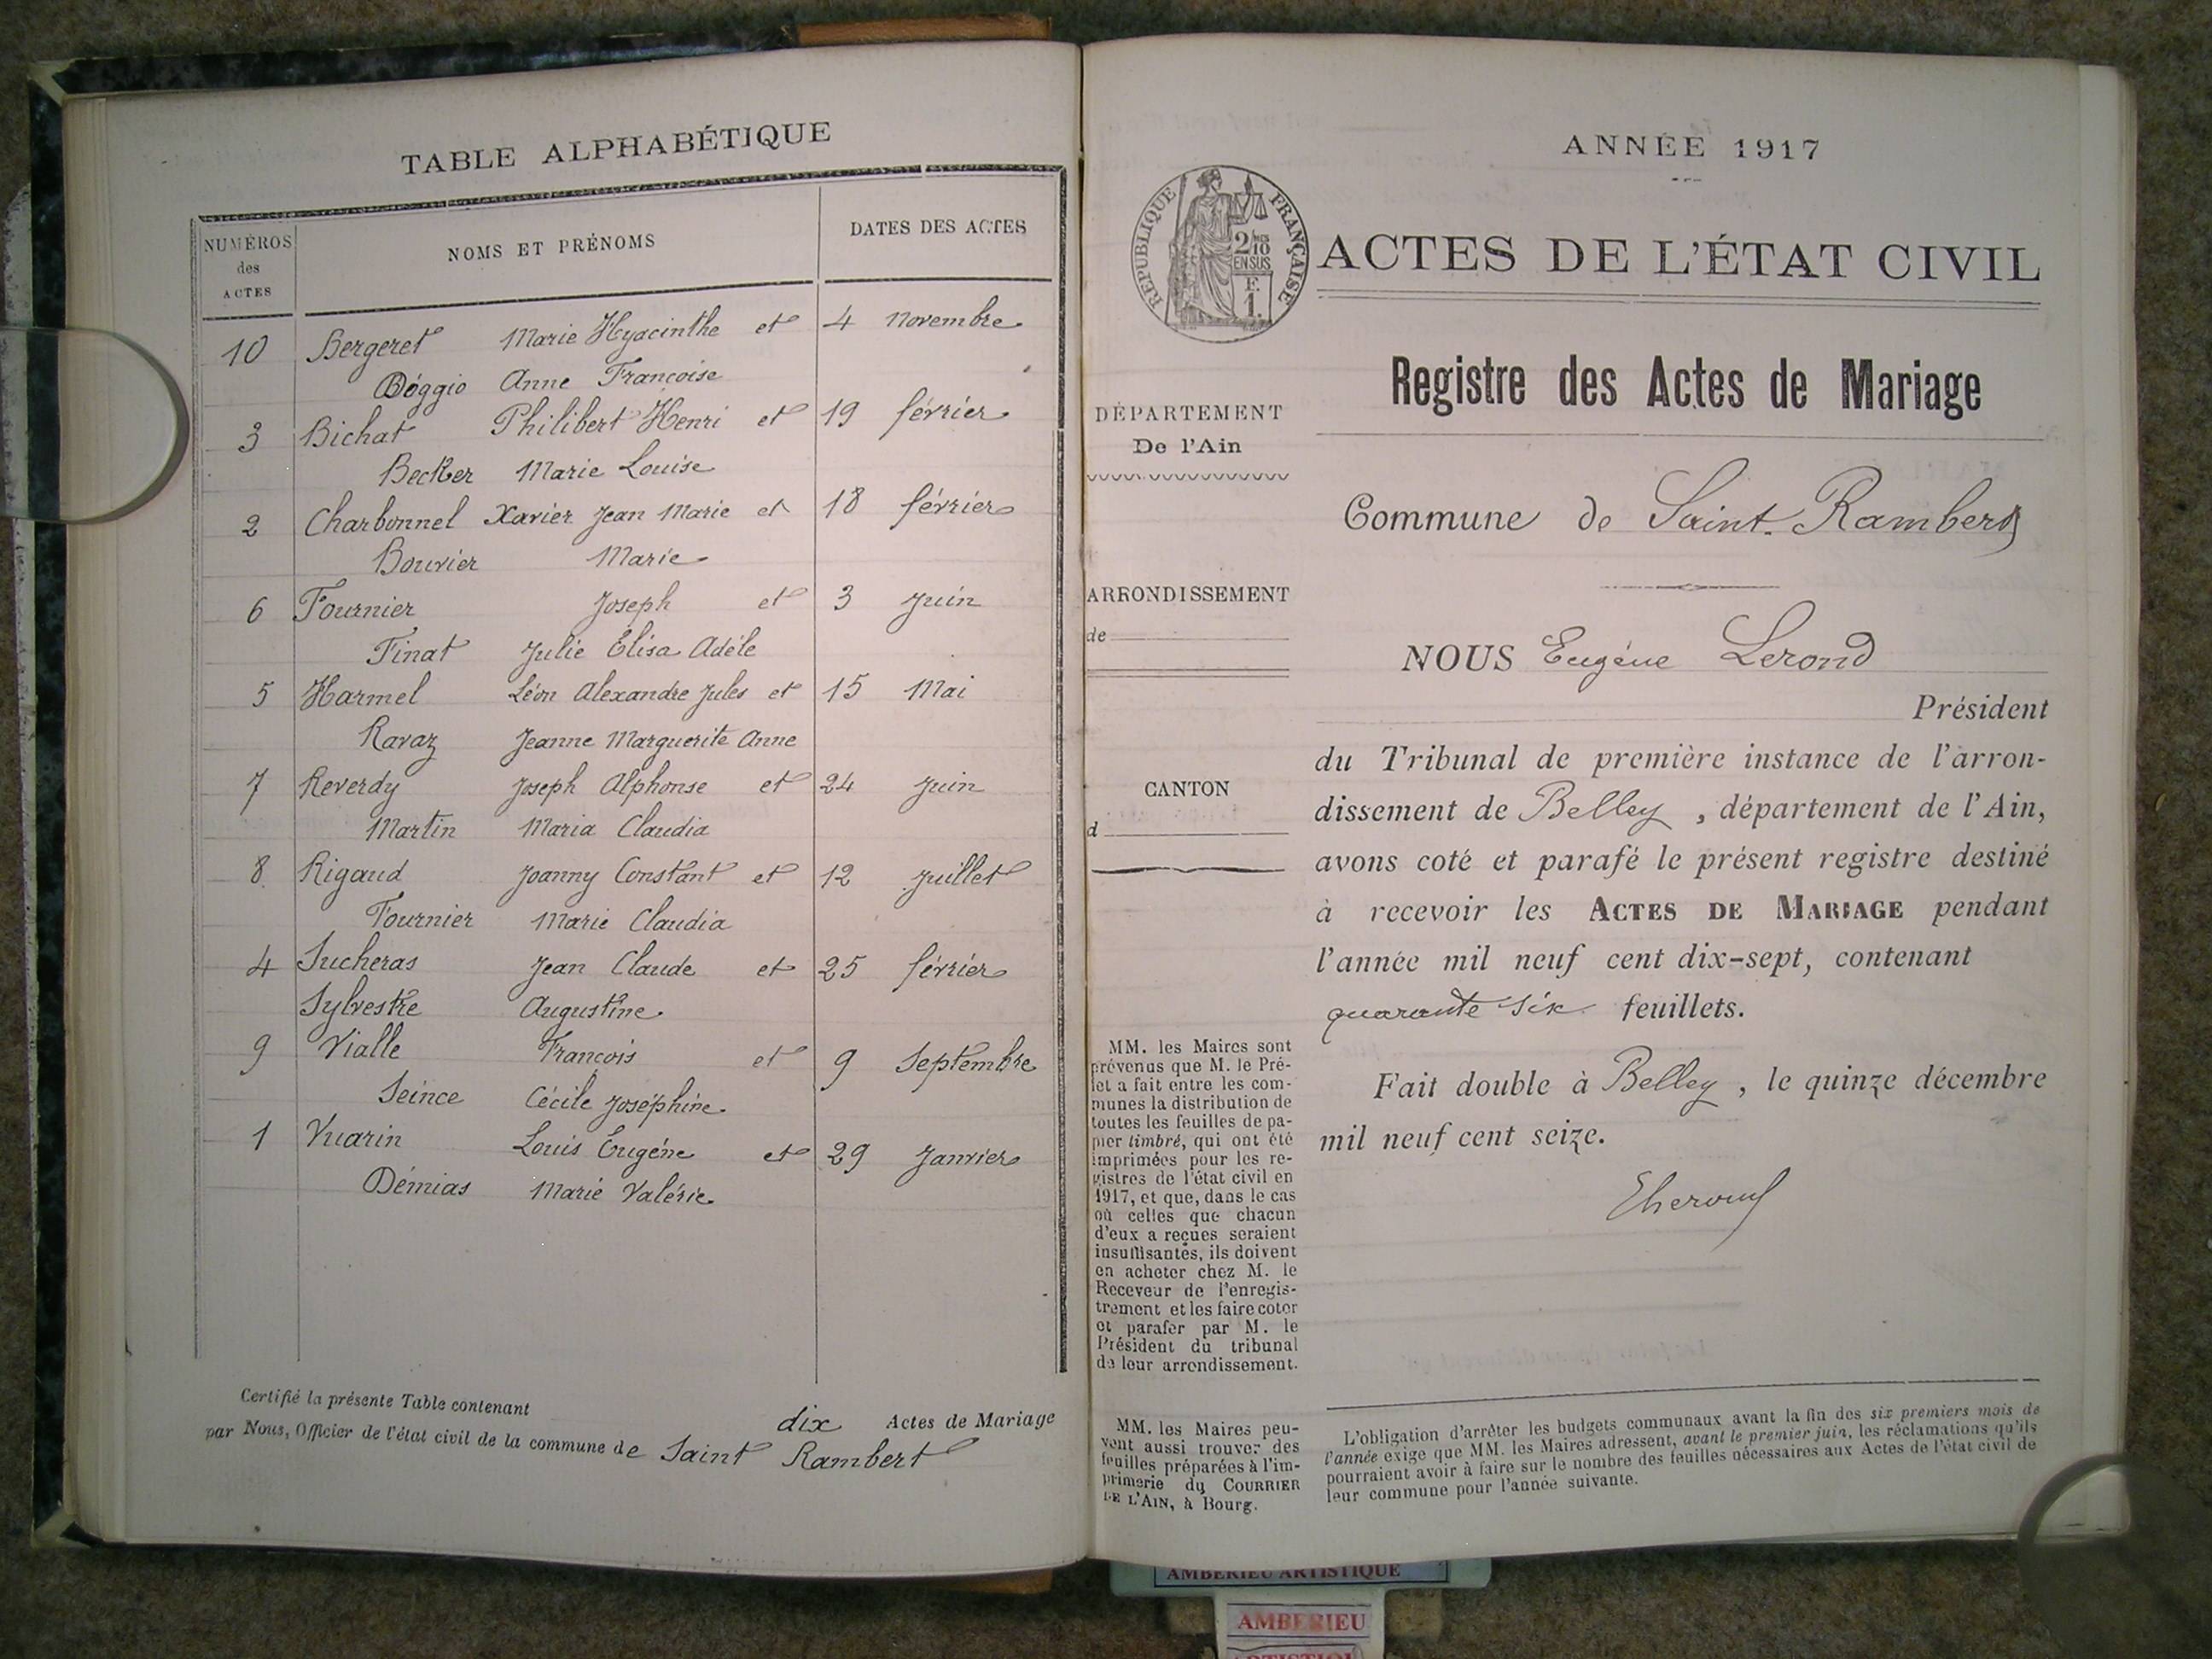 TABLE ALPHABÉTIQUE
NUMÉROS des ACTES NOMS ET PRÉNOMS DATES DES ACTES
10 Bergeret Marie Hyacinthe et 4 novembre
Bóggio Anne Françoise
3 Bichat Philibert Henri et 19 février
Becker Marie Louise
2 Charbonnel Xavier Jean Marie et 18 février
Bouvier Marie
6 Fournier Joseph et 3 Juin
Tinat Julie Élisa Adèle
5 Harmel Léon Alexandre Jules et 15 Mai
Ravaz Jeanne Marguerite Anne
7 Reverdy Joseph Alphonse et 24 Juin
Martin Maria Claudia
8 Rigaud Joanny Constant et 12 Juillet
Fournier Marie Claudia
4 Sucheras Jean Claude et 25 février
Sylvestre Augustine
9 Vialle François et 9 Septembre
Seince Cécile Joséphine
1 Vuarin Louis Eugéne et 29 Janvier
Démias Marie Valérie
Certifié la présente Table contenant dix Actes de Mariage
par Nous, Officier de l'état civil de la commune de Saint Rambert
ANNÉE 1917
RÉPUBLIQUE FRANÇAISE
2/10
EN SUS
F.
1.
ACTES DE L'ÉTAT CIVIL
Registre des Actes de Mariage
DÉPARTEMENT
De l'Ain
ARRONDISSEMENT
de
CANTON
d
MM. les Maires sont
prévenus que M. le Pré-
fet a fait entre les com-
munes la distribution de
toutes les feuilles de pa-
pier timbré, qui ont été
imprimées pour les re-
gistres de l'état civil en
1917, et que, dans le cas
où celles que chacun
d'eux a reçues seraient
insuffisantes, ils doivent
en acheter chez M. le
Receveur de l'enregis-
trement et les faire coter
et parafer par M. le
Président du tribunal
de leur arrondissement.
MM. les Maires peu-
vent aussi trouver des
feuilles préparées à l'im-
primerie du COURRIER
DE L'AIN, à Bourg.
Commune de Saint-Rambert
NOUS Eugéne Lerond
Président
du Tribunal de première instance de l'arron-
dissement de Belley , département de l'Ain,
avons coté et parafé le présent registre destiné
à recevoir les ACTES DE MARIAGE pendant
l'année mil neuf cent dix-sept, contenant
quarante six feuillets.
Fait double à Belley , le quinze décembre
mil neuf cent seize.
L'obligation d'arrêter les budgets communaux avant la fin des six premiers mois de
l'année exige que MM. les Maires adressent, avant le premier juin, les réclamations qu'ils
pourraient avoir à faire sur le nombre des feuilles nécessaires aux Actes de l'état civil de
leur commune pour l'année suivante.
AMBERIEU ARTISTIQUE
AMBERIEU